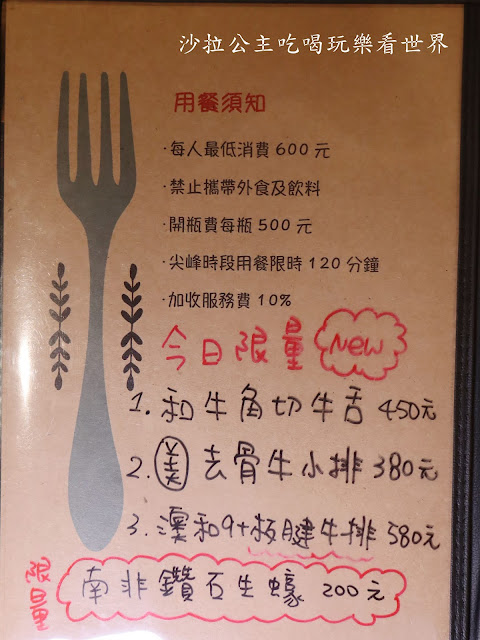 沙拉公主吃喝玩樂看世界
用餐須知
·每人最低消費600元
·禁止攜帶外食及飲料
·開瓶費每瓶500元
·尖峰時段用餐限時120分鐘
·加收服務費10%
今日限量 New
1. 和牛角切牛舌 450元
2. 美 去骨牛小排 380元
3. 澳和9+板腱牛排 580元
限量 南非鑽石生蠔 200元